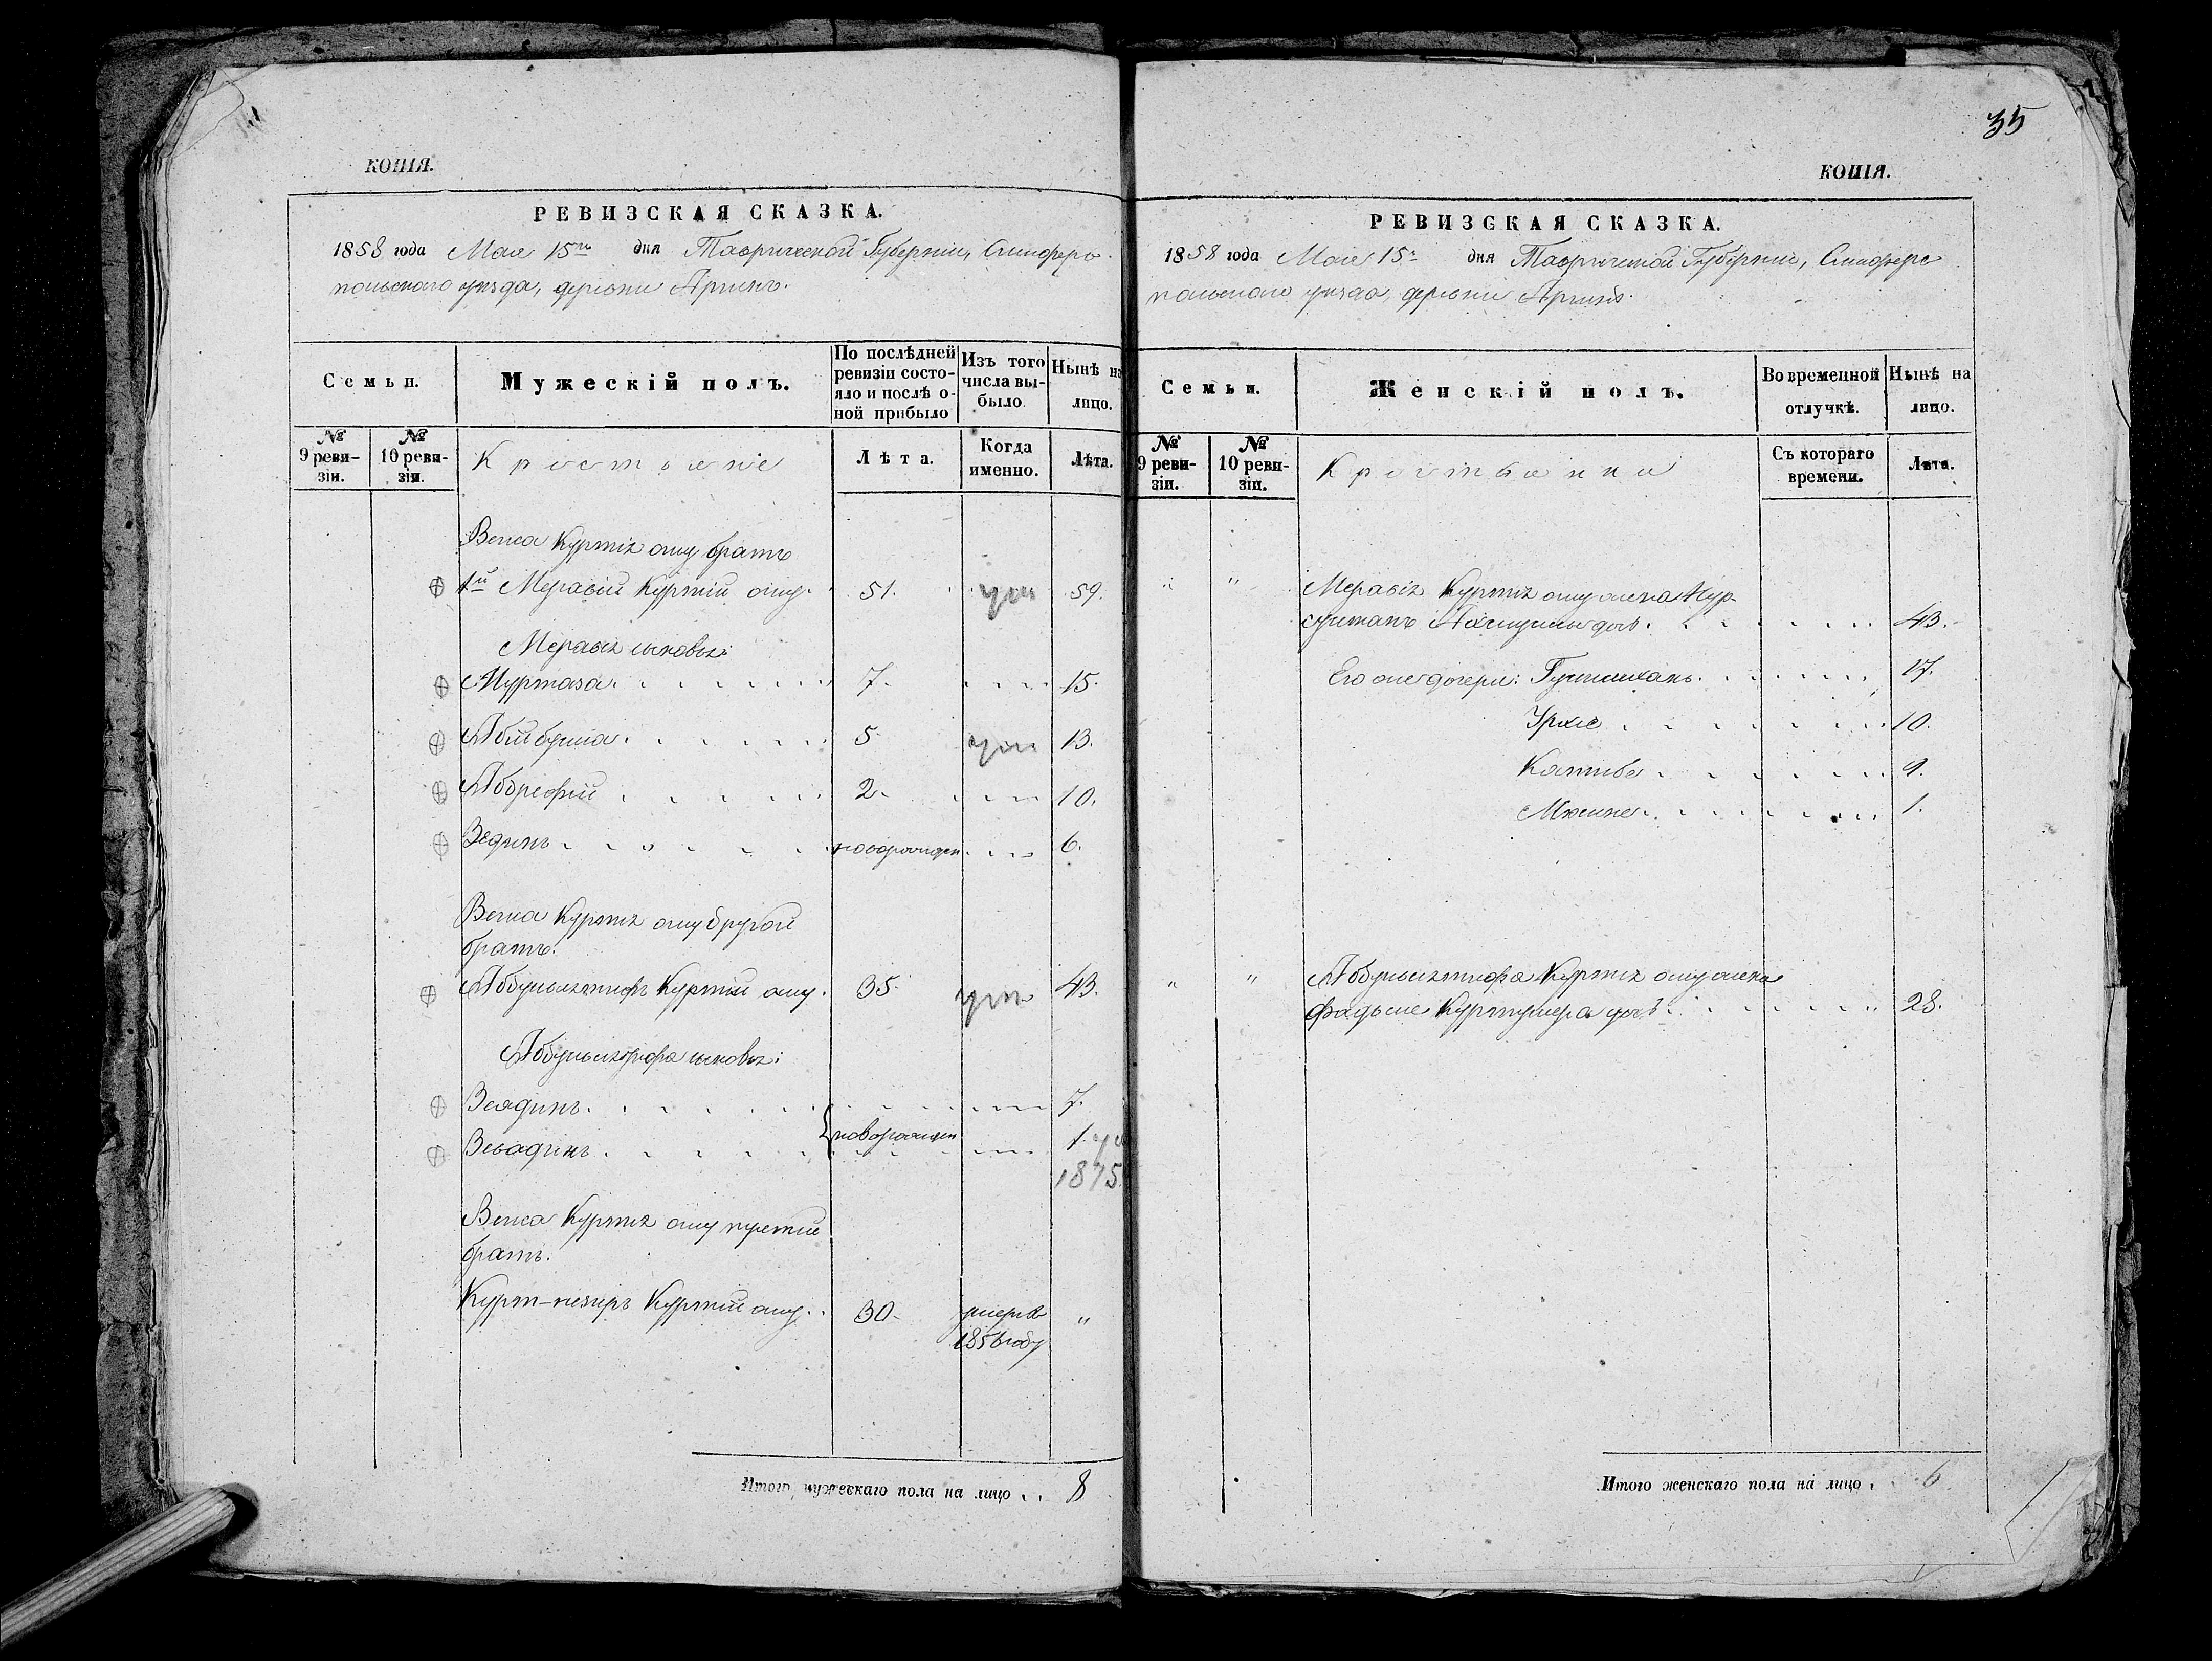 КОПІЯ.
РЕВИЗСКАЯ СКАЗКА.
1858 года Мая 15го дня Таврической Губерніи, Симферо-
польскаго уѣзда, деревни Аргинъ.
Семьи.
Мужескій полъ.
По послѣдней ревизіи состо-
яло и послѣ о-
ной прибыло
Изъ того числа вы-
было.
Нынѣ на лицо.
№ 9 реви-
зіи.
№ 10 реви-
зіи.
Крестьяне
Лѣта.
Когда именно.
Лѣта.
Велиса Куртій оглу братъ
1й Меравій Куртій оглу 51. ум 59.
Меравія сыновья:
Муртаза 7. 15.
Абибулла 5 ум 13.
Абдрефій 2. 10.
Зединъ новорожден 6.
Куртія оглу другой
братъ.
Абдульлятифъ Куртій оглу. 35. ум 43.
Абдульлятифа сыновья:
Зеядинъ. 7.
новорожден
1. ум
1875
Куртія оглу третій
братъ.
Курт-незиръ Куртій оглу 30. умеръ въ
1856 году "
Итого мужескаго пола на лицо . . 8
35
КОПІЯ.
РЕВИЗСКАЯ СКАЗКА.
1858 года Мая 15го дня Таврической Губерніи, Симферо-
польскаго уѣзда, деревни Аргинъ.
Семьи.
Женскій полъ.
Во временной отлучкѣ.
Нынѣ на лицо.
№ 9 реви-
зіи.
№ 10 реви-
зіи.
Крестьянки
Съ котораго времени.
Лѣта.
" " Меравія Куртія оглу жена Нур-
султанъ дочь. 43.
Его же дочери: Гульшиханъ 17.
Урхие 10.
Катибе 9.
1.
" " Абдульлятифа Куртія оглу жена
Фадьме Куртумера дочь 28.
Итого женскаго пола на лицо . 6